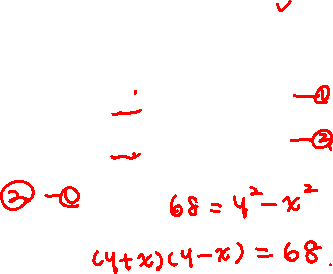 ✓
—①
—②
②—① 68 = y² − x²
(y+x)(y−x) = 68.